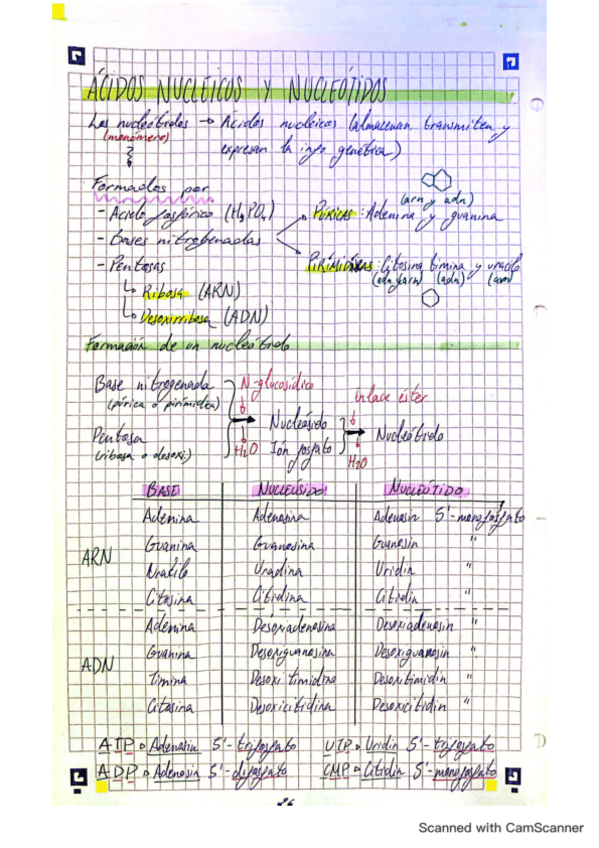 ÁCIDOS NUCLEICOS Y NUCLEÓTIDOS
Los nucleótidos → Ácidos nucleicos (almacenan transmiten y
(monómero)
expresan la info genética)
Formados por
(arn y adn)
- Ácido fosfórico (H3PO4)
Púricas: Adenina y guanina
- Bases nitrogenadas
- Pentosas
Pirimidícas: Citosina timina y uracilo
(adn y arn) (adn) (arn)
↳ Ribosa (ARN)
↳ Desoxirribosa (ADN)
Formación de un nucleótido
Base nitrogenada
N-glucosídico
(púrica o pirimídica)
enlace éster
Nucleósido
Nucleótido
Pentosa
H2O
Ión fosfato
(ribosa o desoxi)
H2O
BASE NUCLEÓSIDO NUCLEÓTIDO
Adenina Adenosina Adenosin 5'-monofosfato
Guanina Guanosina Guanosin "
ARN
Uracilo Uradina Uridin "
Citosina Citidina Citidin "
Adenina Desoxiadenosina Desoxiadenosin "
Guanina Desoxiguanosina Desoxiguanosin "
ADN
Timina Desoxitimidina Desoxitimidin "
Citosina Desoxicitidina Desoxicitidin "
ATP → Adenosin 5'-trifosfato UTP → Uridin 5'-trifosfato
ADP → Adenosin 5'-difosfato CMP → Citidin 5'-monofosfato
Scanned with CamScanner